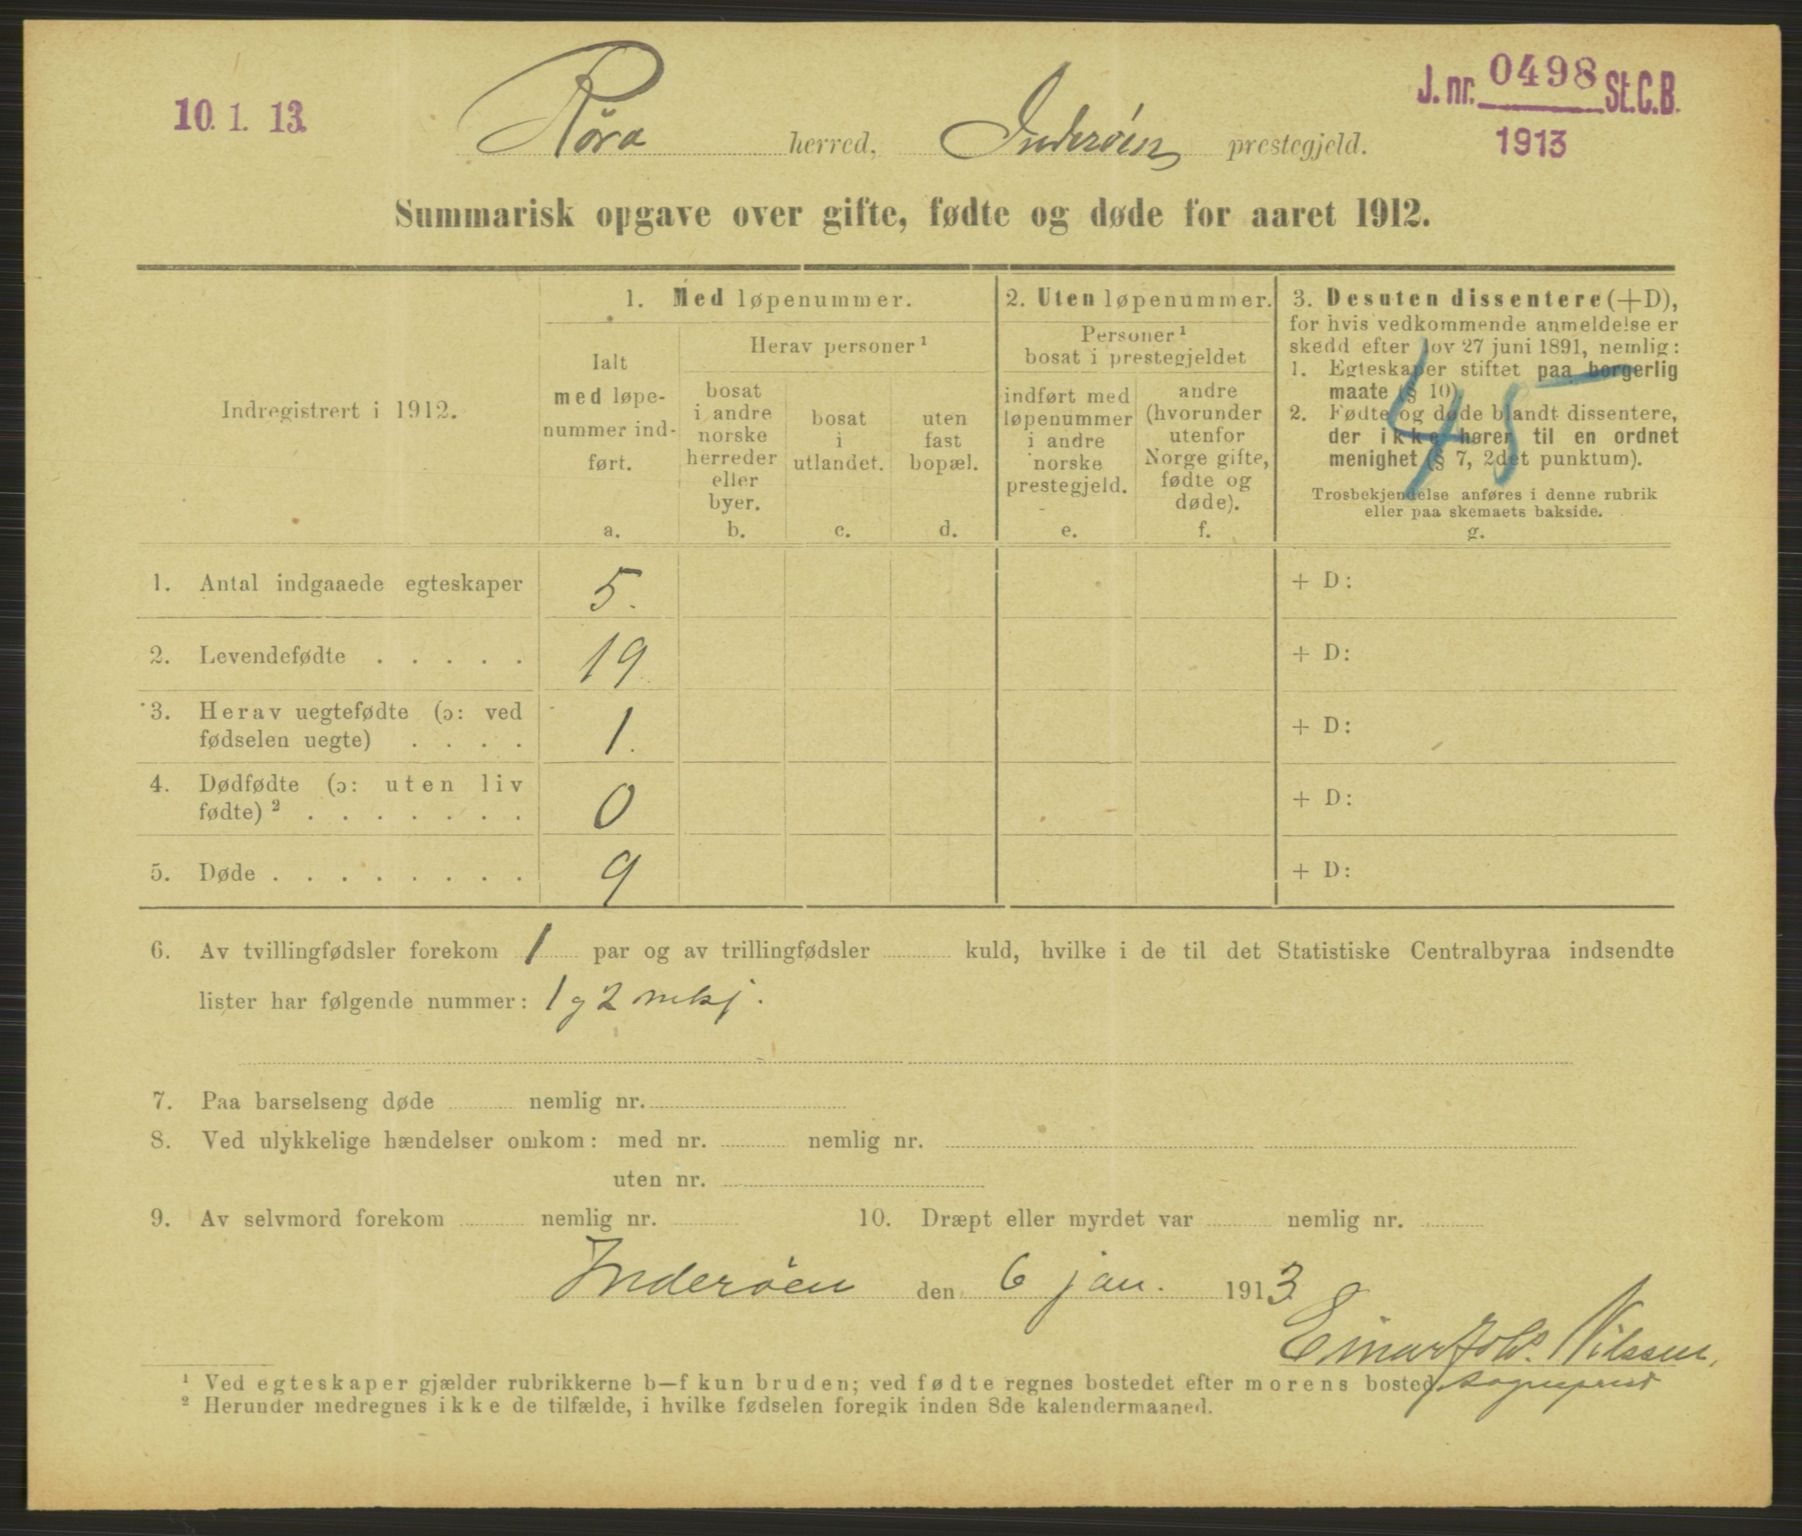 10. 1. 13.
J. nr. 0498 St.C.B.
1913
Röra herred, Inderöen prestegjeld.
Summarisk opgave over gifte, fødte og døde for aaret 1912.
Indregistrert i 1912.
1. Med løpenummer.
Ialt
med løpe-
nummer ind-
ført.
a.
Herav personer ¹
bosat
i andre
norske
herreder
eller
byer.
b.
bosat
i
utlandet.
c.
uten
fast
bopæl.
d.
2. Uten løpenummer.
Personer ¹
bosat i prestegjeldet
indført med
løpenummer
i andre
norske
prestegjeld.
e.
andre
(hvorunder
utenfor
Norge gifte,
fødte og
døde).
f.
3. Desuten dissentere (+D),
for hvis vedkommende anmeldelse er
skedd efter lov 27 juni 1891, nemlig:
1. Egteskaper stiftet paa borgerlig
maate (§ 10).
2. Fødte og døde blandt dissentere,
der ikke hører til en ordnet
menighet (§ 7, 2det punktum).
Trosbekjendelse anføres i denne rubrik
eller paa skemaets bakside.
g.
45
1. Antal indgaaede egteskaper 5. + D:
2. Levendefødte . . . . . 19 + D:
3. Herav uegtefødte (ɔ: ved
fødselen uegte) . . . . 1. + D:
4. Dødfødte (ɔ: uten liv
fødte) ² . . . . . . . 0 + D:
5. Døde . . . . . . . . 9 + D:
6. Av tvillingfødsler forekom 1 par og av trillingfødsler kuld, hvilke i de til det Statistiske Centralbyraa indsendte
lister har følgende nummer: 1 og 2 mkj.
7. Paa barselseng døde nemlig nr.
8. Ved ulykkelige hændelser omkom: med nr. nemlig nr.
uten nr.
9. Av selvmord forekom nemlig nr. 10. Dræpt eller myrdet var nemlig nr.
Inderöen den 6 jan. 1913
Einar Fold. Nilssen,
sogneprest
¹ Ved egteskaper gjælder rubrikkerne b—f kun bruden; ved fødte regnes bostedet efter morens bosted.
² Herunder medregnes ikke de tilfælde, i hvilke fødselen foregik inden 8de kalendermaaned.